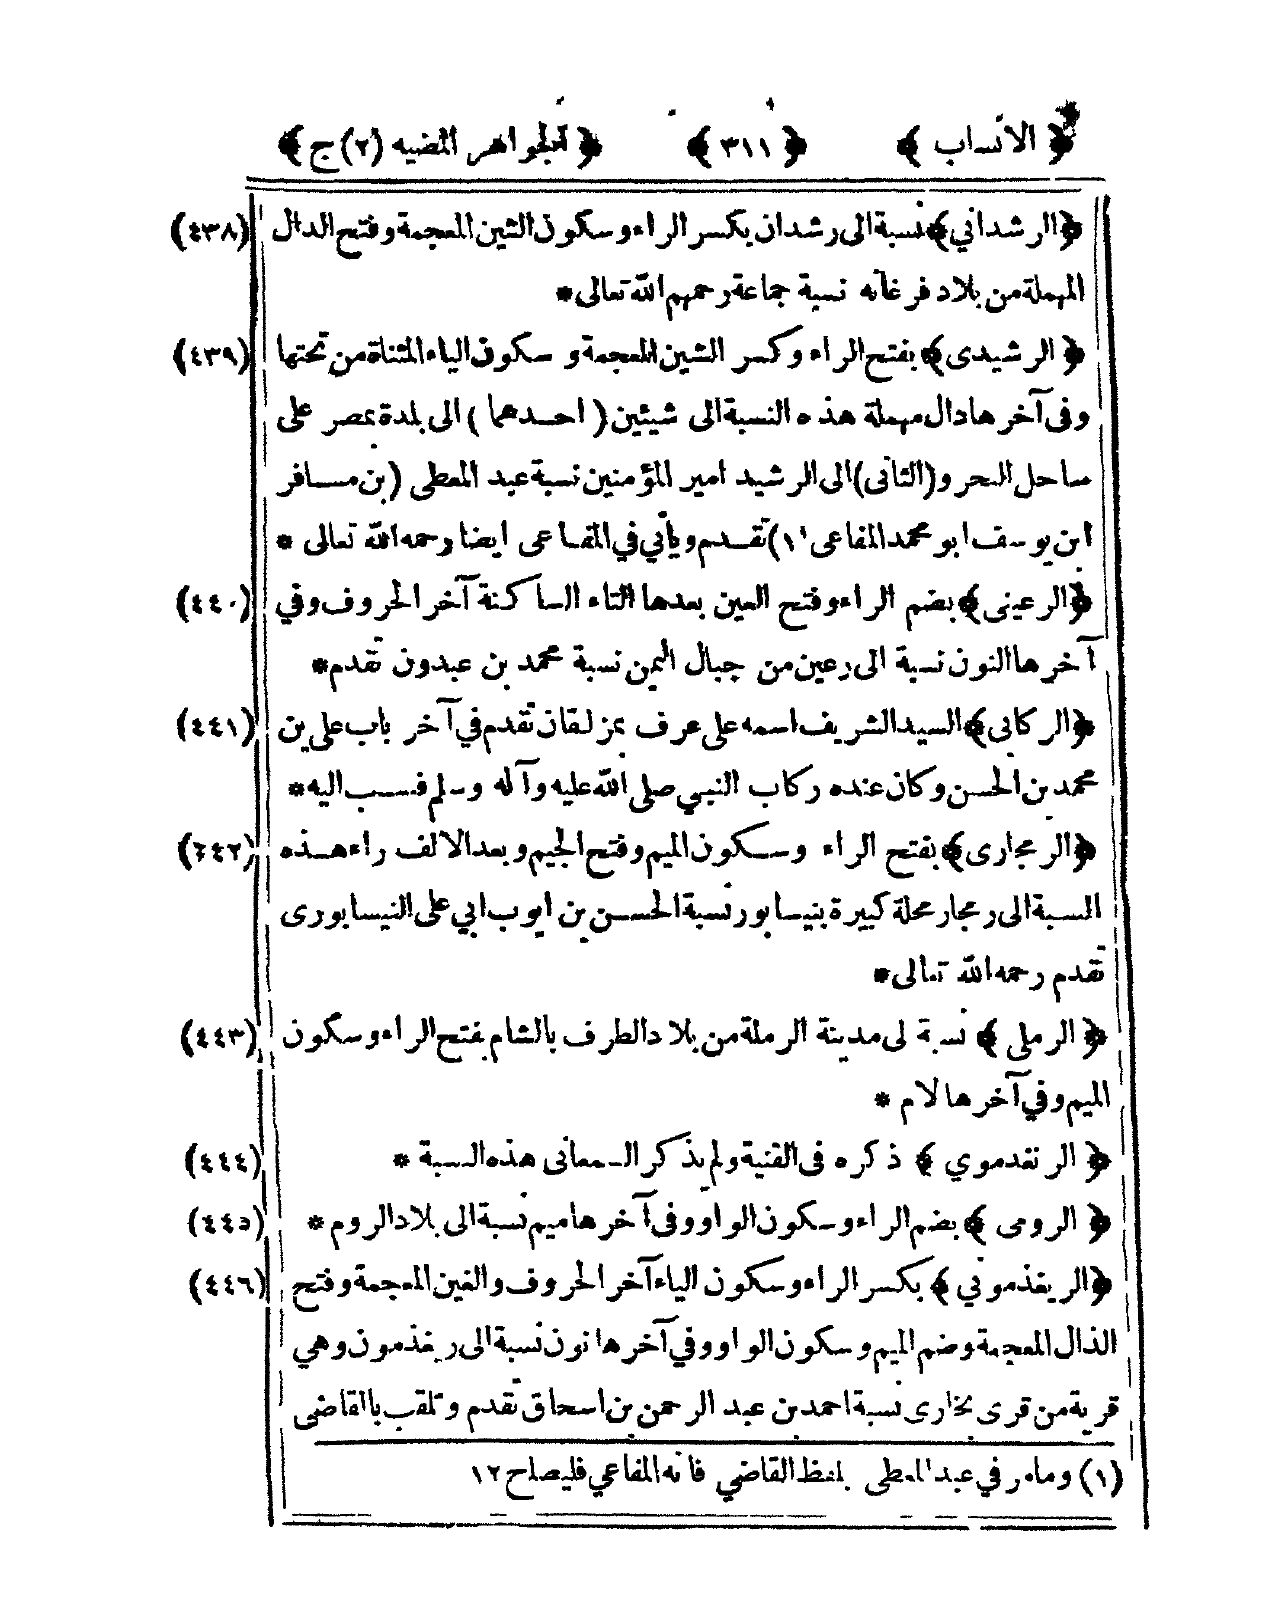 ﴿ الانساب ﴾ ﴿ ٣١١ ﴾ ﴿ الجواهر المضيه (٢) ج ﴾
﴿الرشداني﴾ نسبة الى رشدان بكسر الراء وسكون الشين المعجمة وفتح الدال (٤٣٨)
المهملة من بلاد فرغانه نسبة جماعة رحمهم الله تعالى *
﴿ الرشيدى﴾ بفتح الراء وكسر الشين المعجمة و سكون الياء المثناة من تحتها (٤٣٩)
وفى آخرها دال مهملة هذه النسبة الى شيئين ( احدهما ) الى بلدة بمصر على
ساحل البحر و (الثانى) الى الرشيد امير المؤمنين نسبة عبد المعطى (بن مسافر
ابن يوسف ابو محمد المفاعى ١) تقدم ويأتي في المفاعى ايضا رحمه الله تعالى *
﴿الرعينى﴾ بضم الراء وفتح العين بعدها التاء الساكنة آخر الحروف وفي (٤٤٠)
آخرها النون نسبة الى رعين من جبال اليمن نسبة محمد بن عبدون تقدم *
﴿الركابى﴾ السيد الشريف اسمه على عرف بمزلقان تقدم في آخر باب على بن (٤٤١)
محمد بن الحسن وكان عنده ركاب النبي صلى الله عليه وآله وسلم فنسب اليه *
﴿الرمجارى﴾ بفتح الراء وسكون الميم وفتح الجيم وبعد الالف راء هذه (٤٤٢)
النسبة الى رمجار محلة كبيرة بنيسابور نسبة الحسن بن ايوب ابي على النيسابورى
تقدم رحمه الله تعالى *
﴿ الرملى ﴾ نسبة لى مدينة الرملة من بلاد الطرف بالشام بفتح الراء وسكون (٤٤٣)
الميم وفي آخرها لام *
﴿ الرنقدموي ﴾ ذكره فى القنية ولم يذكر السمعانى هذه النسبة * (٤٤٤)
﴿ الرومى ﴾ بضم الراء وسكون الواو وفى آخرها ميم نسبة الى بلاد الروم * (٤٤٥)
﴿الريغذموني ﴾ بكسر الراء وسكون الياء آخر الحروف والغين المعجمة وفتح (٤٤٦)
الذال المعجمة وضم الميم وسكون الواو وفي آخرها نون نسبة الى ريغذمون وهي
قرية من قرى بخارى نسبة احمد بن عبد الرحمن بن اسحاق تقدم وتلقب بالقاضى
(١) ومامر في عبد المعطى بلفظ القاضي فانه المفاعي فليصلح ١٢